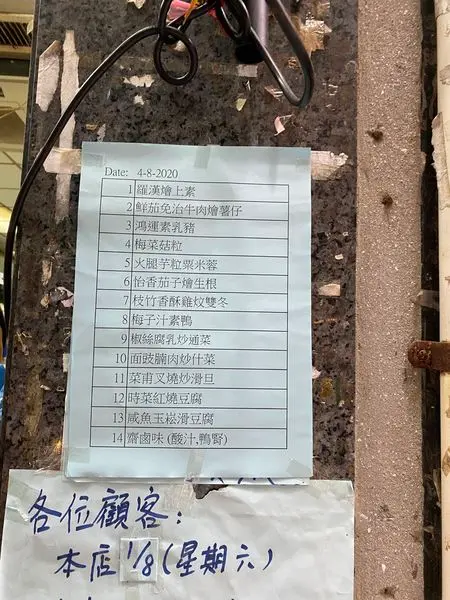 Date: 4-8-2020
1 羅漢燴上素
2 鮮茄免治牛肉燴薯仔
3 鴻運素乳豬
4 梅菜菇粒
5 火腿芋粒粟米蓉
6 怡香茄子燴生根
7 枝竹香酥雞炆雙冬
8 梅子汁素鴨
9 椒絲腐乳炒通菜
10 面豉腩肉炒什菜
11 菜甫叉燒炒滑旦
12 時菜紅燒豆腐
13 咸魚玉崧滑豆腐
14 齋鹵味 (酸汁,鴨腎)
各位顧客：
本店 1/8 (星期六)